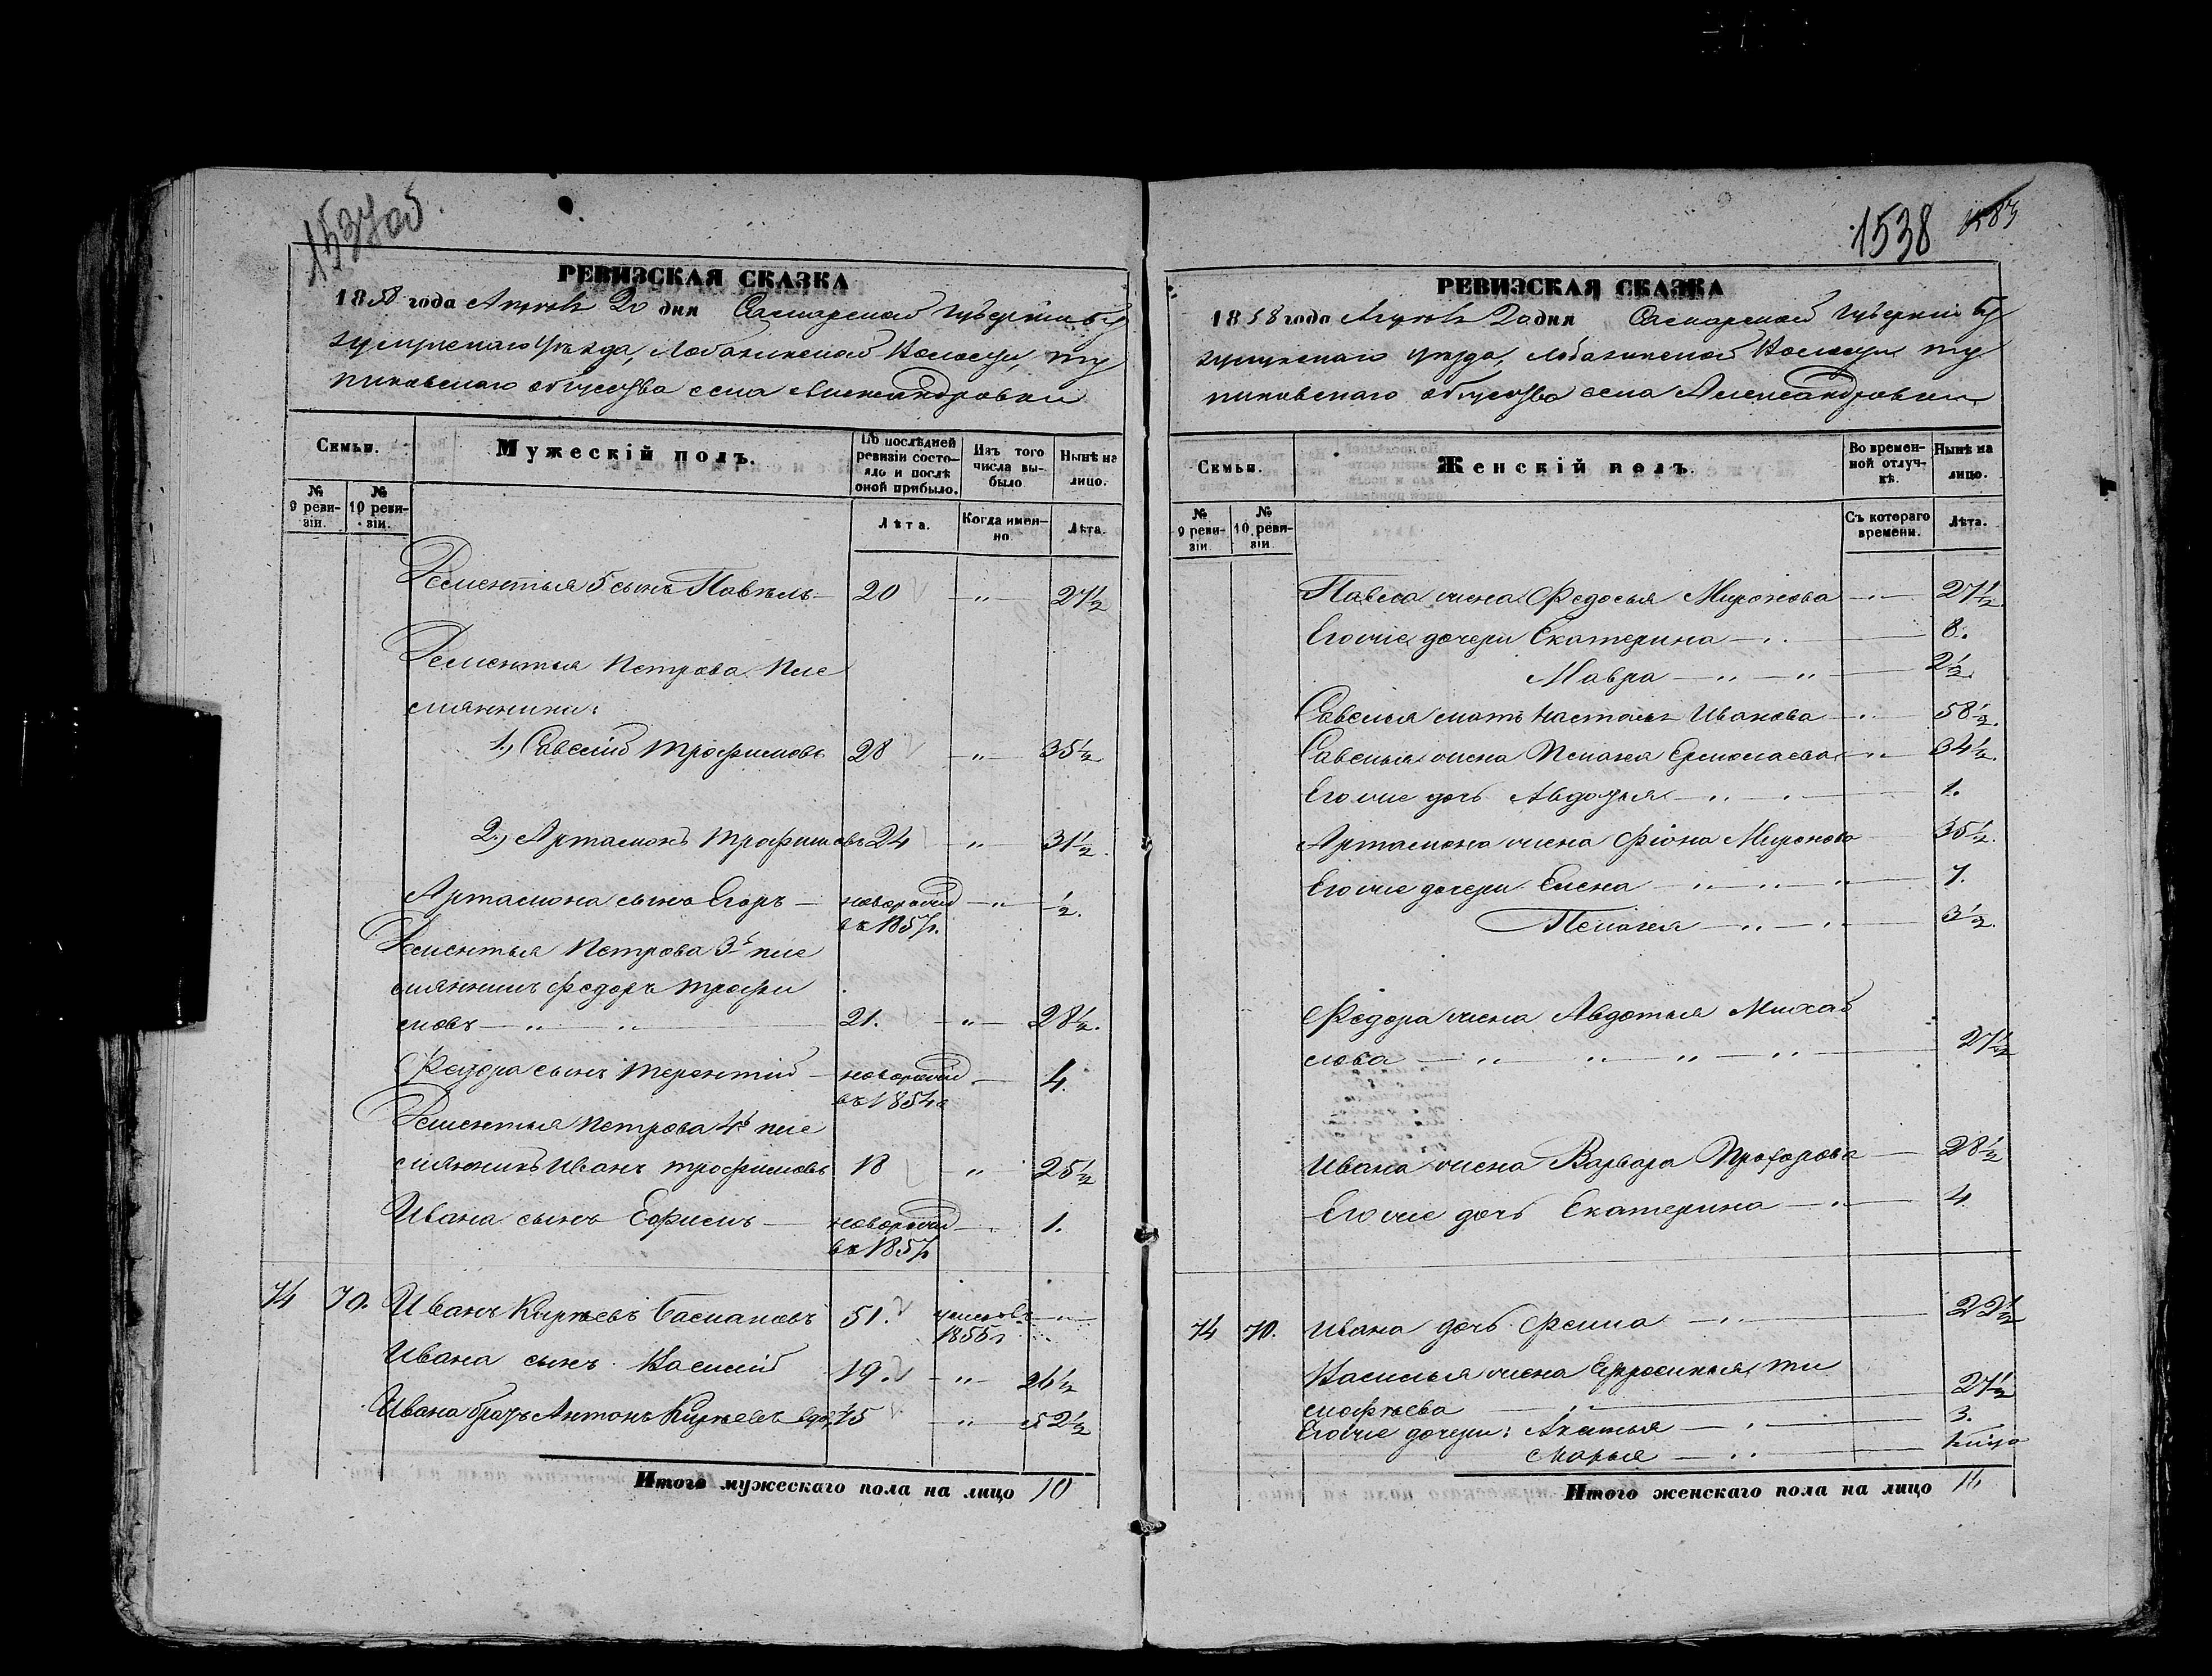 1537об.
РЕВИЗСКАЯ СКАЗКА
1858 года Апреля 20 дня Самарской Губернии Бу
зулукскаго Уѣзда, Лобазинской Волости, Ту
пиковскаго общества села Александровки
Семьи.
Мужескій полъ.
По послѣдней ревизіи состояло и послѣ оной прибыло.
Изъ того числа выбыло
Нынѣ на лицо.
№ 9 ревизіи.
№ 10 ревизіи.
Лѣта.
Когда именно
Лѣта.
Дементья 5 сынъ Павелъ — 20 — „ — 27½
Дементья Петрова пле
мянники:
1.) Савелій Трофимовъ 28 — „ — 35½
2.) Артамонъ Трофимовъ 24 — „ — 31½.
Артамона сынъ Егоръ — новорожд — „ — ½.
въ 1857г.
Дементья Петрова 3й пле
мянникъ Федоръ Трофи
мовъ — „ „ 21. — „ — 28½.
Федора сынъ Терентій — новорожд — 4.
въ 1854г
Дементья Петрова 4й пле
мянникъ Иванъ Трофимовъ 18 „ 25½
Ивана сынъ Ефимъ — новорожд — 1.
въ 1857г
74 70. Иванъ Киреевъ Басмановъ 51. умеръ въ — „ —
1855г
Ивана сынъ Василій 19. — „ — 26½
Ивана братъ Антонъ Киреевъ вдов. 45 — „ 52½
Итого мужескаго пола на лицо 10
1538
РЕВИЗСКАЯ СКАЗКА
1858 года Апреля 20 дня Самарской Губерніи Бу
зулукскаго уѣзда, Лобазинской Волости Ту
пиковскаго общества села Александровки
Семьи.
Женскій полъ.
Во временной отлучкѣ.
Нынѣ на лицо.
№ 9 ревизіи.
№ 10 ревизіи.
Съ котораго времени.
Лѣта.
Павла жена Федосья Миронова — „ — 27½.
Его же дочери Екатерина — „ — 8.
Мавра — „ — „ — 2½.
Савелья мать Настасья Иванова — „ — 58½.
Савелья жена Пелагея Ермолаева — „ — 34½.
Его же дочь Авдотья — „ — 1.
Артамона жена Фіона Миронова 35½.
Его же дочери Елена — „ — „ — „ — 7.
Пелагея — „ — „ — 3½.
Федора жена Авдотья Михай
лова — „ „ „ — „ — 27½
Ивана жена Варвара Прохорова — 28½
Его же дочь Екатерина — „ — 4
74 70. Ивана дочь Фекла — „ — 22½
Василья жена Ефросинья Ти
мофѣева — „ — 27½
Его же дочери: Акилина — „ — 3.
Марья — „ —
Итого женскаго пола на лицо